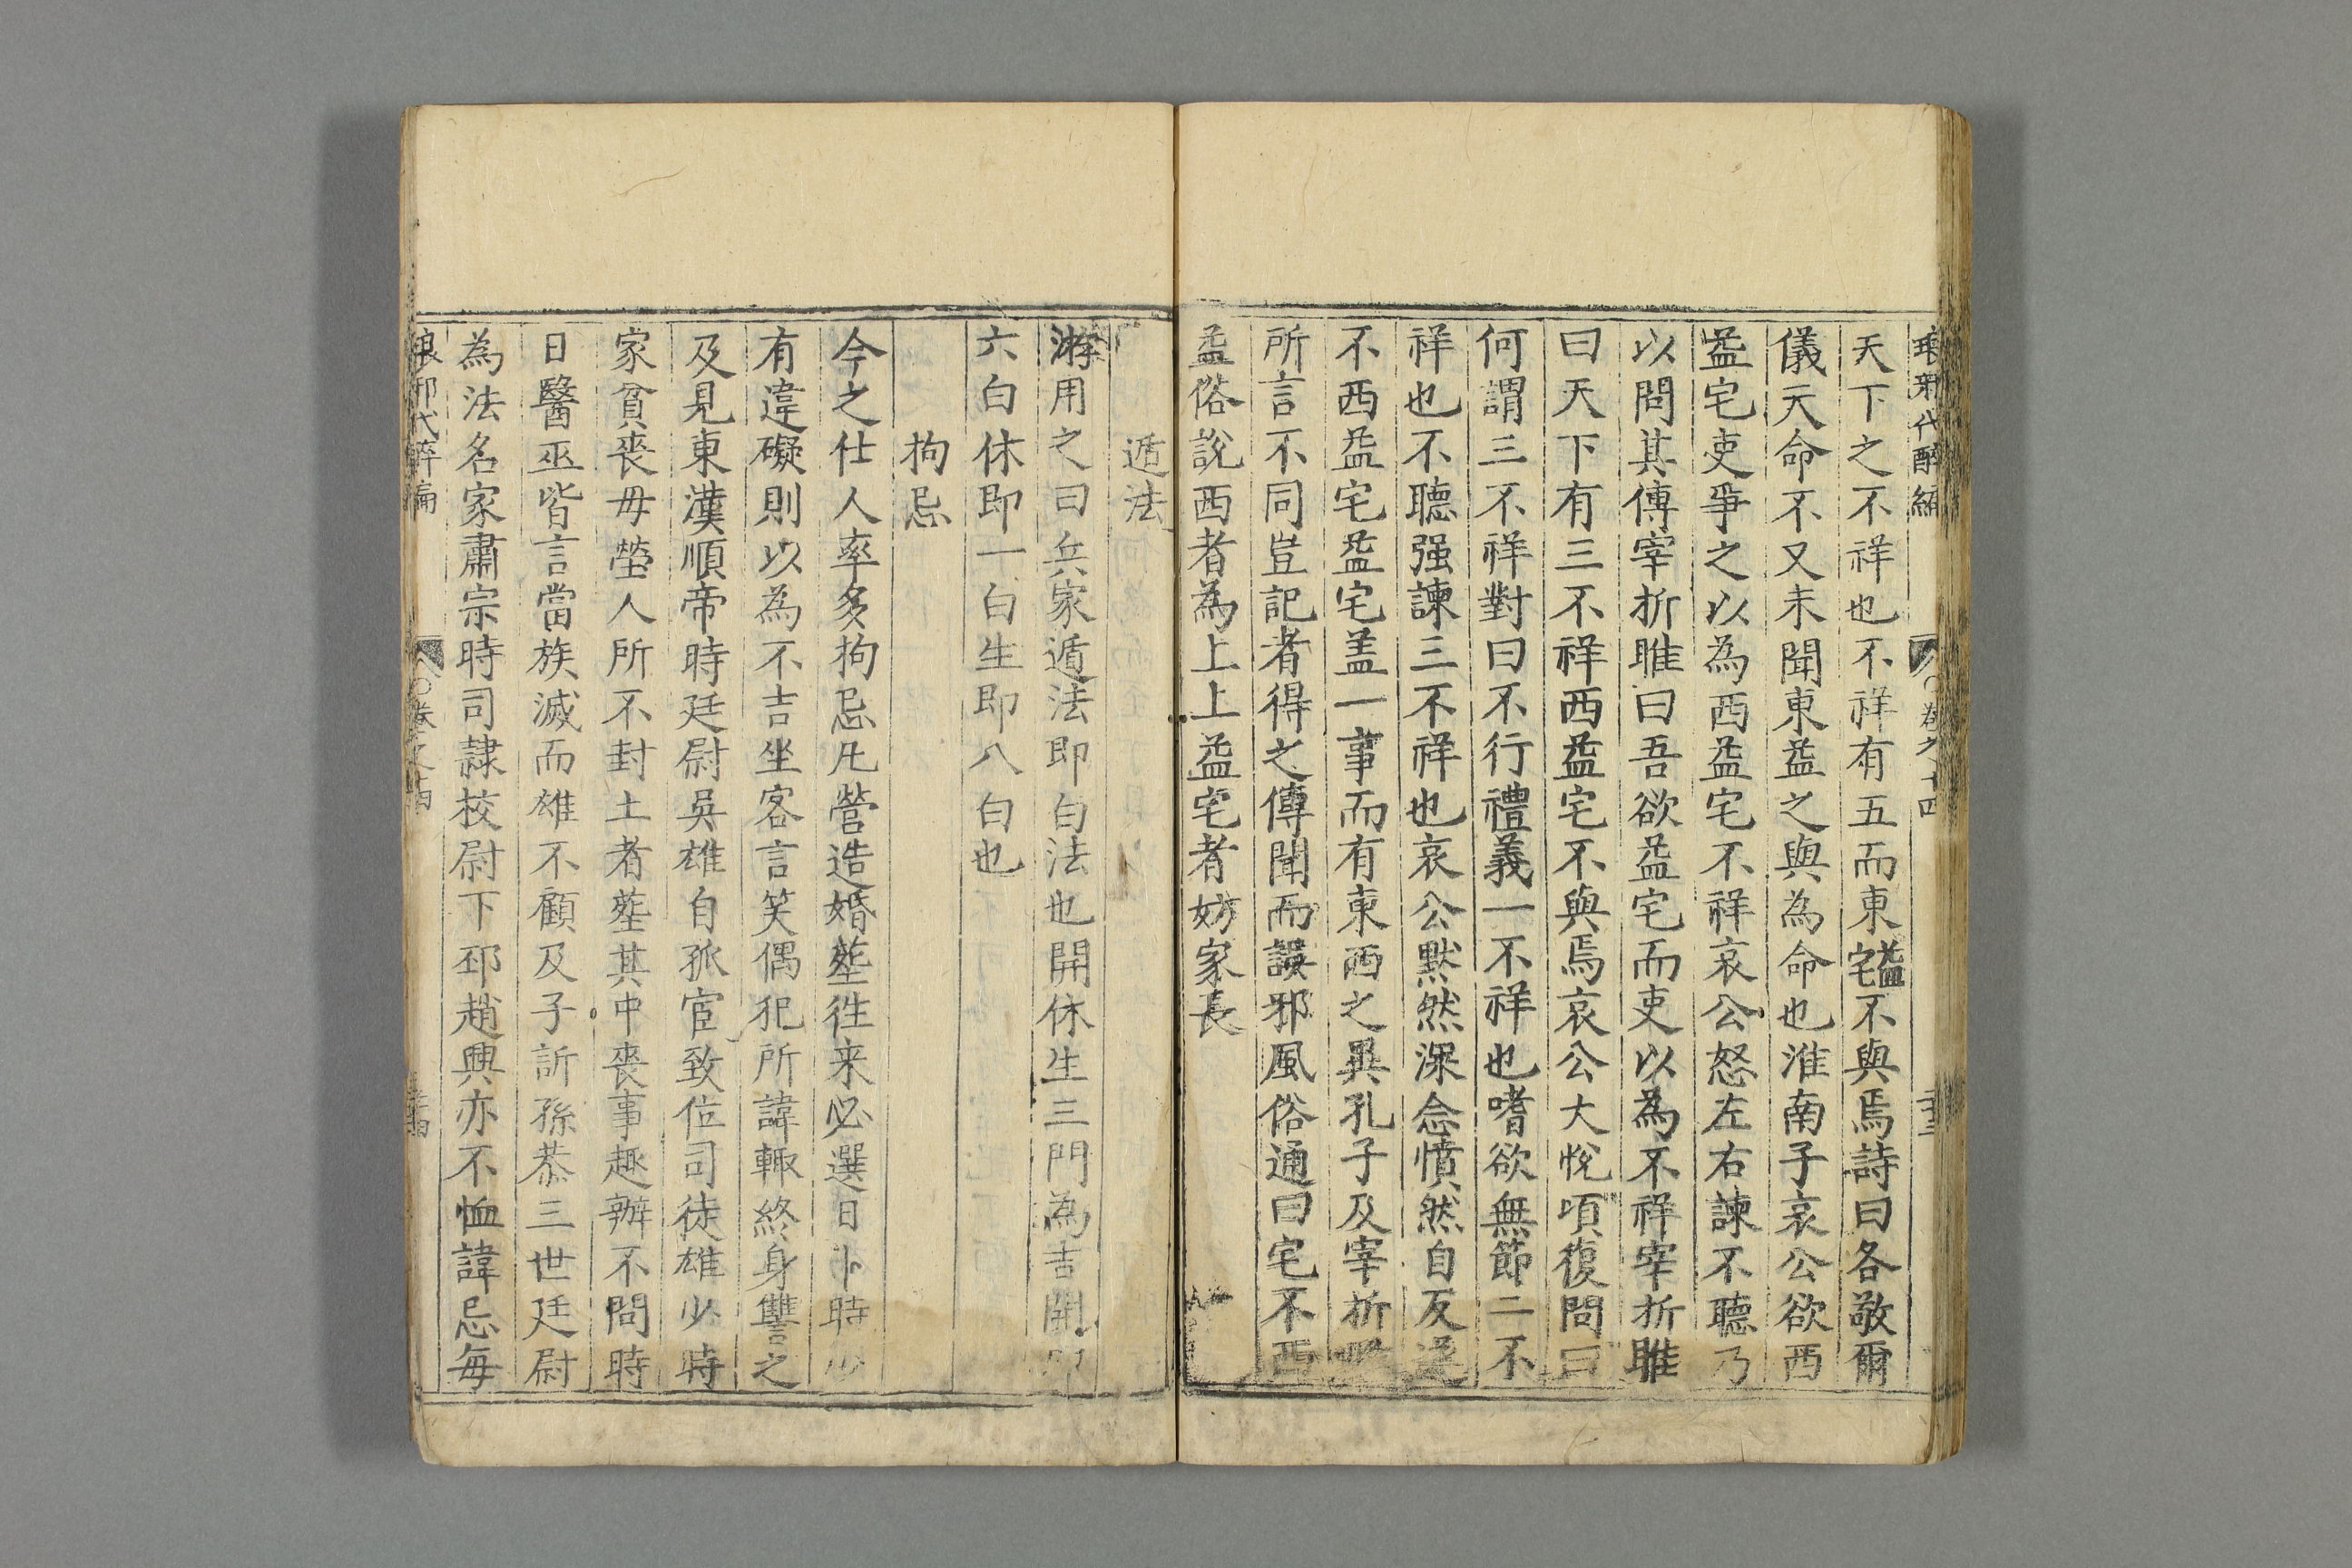 琅琊代醉編 卷之十四
天下之不祥也不祥有五而東益宅不與焉詩曰各敬爾
儀天命不又未聞東益之與為命也淮南子哀公欲西
益宅吏爭之以為西益宅不祥哀公怒左右諫不聽乃
以問其傳宰折睢曰吾欲益宅而吏以為不祥宰折睢
曰天下有三不祥西益宅不與焉哀公大悅頃復問曰
何謂三不祥對曰不行禮義一不祥也嗜欲無節二不
祥也不聽强諫三不祥也哀公默然深念憤然自反遂
不西益宅益宅盖一事而有東西之異孔子及宰折睢
所言不同豈記者得之傳聞而誤邪風俗通曰宅不西
益俗說西者為上上益宅者妨家長
遁法
游用之曰兵家遁法即白法也開休生三門為吉開即
六白休即一白生即八白也
拘忌
今之仕人率多拘忌凡營造婚塟徃来必選日卜時少
有違礙則以為不吉坐客言笑偶犯所諱輙終身讐之
及見東漢順帝時廷尉吳雄自孤宦致位司徒雄少時
家貧喪母塋人所不封土者塟其中喪事趣辦不問時
日醫巫皆言當族滅而雄不顧及子訢孫恭三世廷尉
為法名家肅宗時司隷校尉下邳趙興亦不恤諱忌每
琅琊代醉編 卷之十四